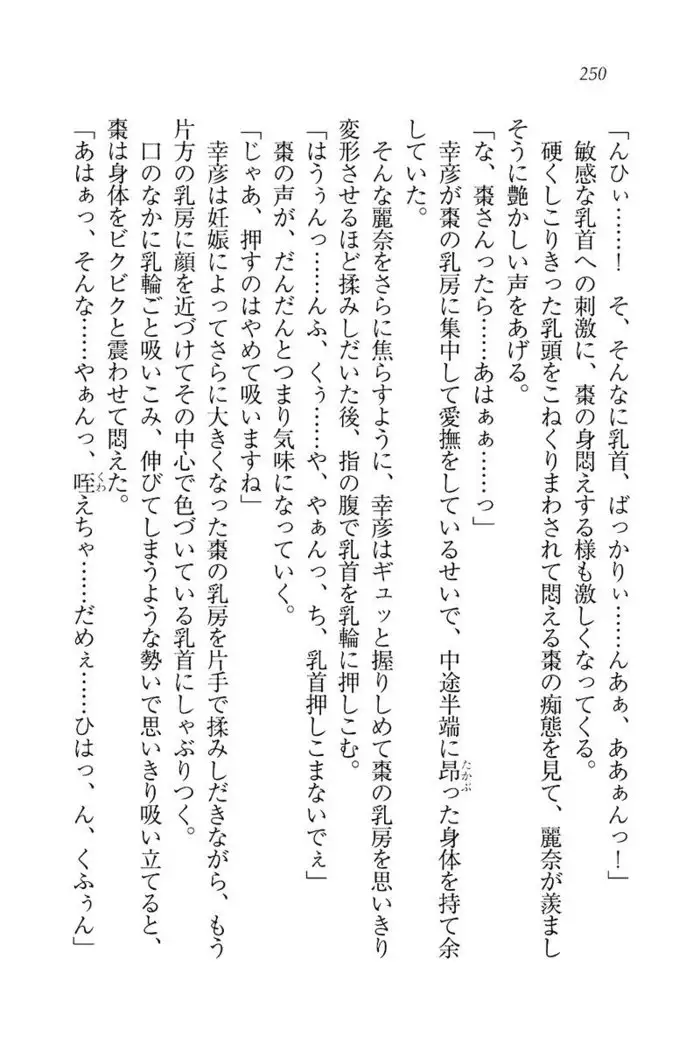 250
「んひぃ……！　そ、そんなに乳首、ばっかりぃ……んあぁ、ああぁんっ！」
敏感な乳首への刺激に、棗の身悶えする様も激しくなってくる。
硬くしこりきった乳頭をこねくりまわされて悶える棗の痴態を見て、麗奈が羨まし
そうに艶かしい声をあげる。
「な、棗さんったら……あはぁぁ……っ」
幸彦が棗の乳房に集中して愛撫をしているせいで、中途半端に昂った身体を持て余
していた。
そんな麗奈をさらに焦らすように、幸彦はギュッと握りしめて棗の乳房を思いきり
変形させるほど揉みしだいた後、指の腹で乳首を乳輪に押しこむ。
「はうぅんっ……んふ、くぅ……や、やぁんっ、ち、乳首押しこまないでぇ」
棗の声が、だんだんとつまり気味になっていく。
「じゃあ、押すのはやめて吸いますね」
幸彦は妊娠によってさらに大きくなった棗の乳房を片手で揉みしだきながら、もう
片方の乳房に顔を近づけてその中心で色づいている乳首にしゃぶりつく。
口のなかに乳輪ごと吸いこみ、伸びてしまうような勢いで思いきり吸い立てると、
棗は身体をビクビクと震わせて悶えた。
「あはぁっ、そんな……やぁんっ、咥えちゃ……だめぇ……ひはっ、ん、くふぅん」